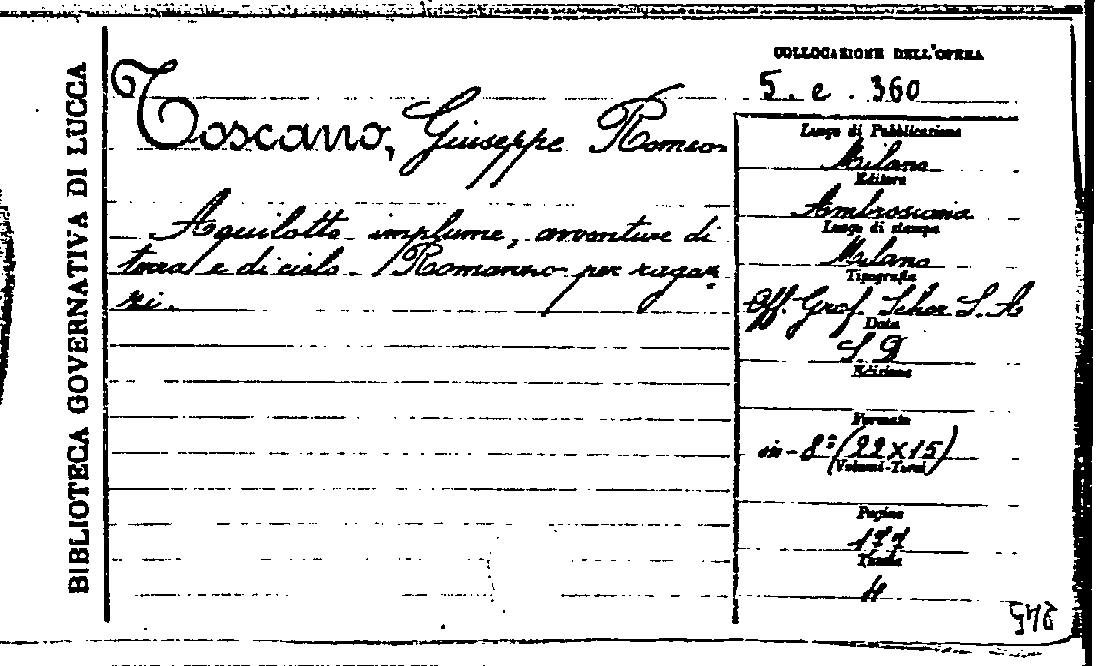 BIBLIOTECA GOVERNATIVA DI LUCCA
Toscano, Giuseppe Romeo
Aquilotto implume, avventure di
terra e di cielo - Romanzo per ragaz-
zi.
COLLOCAZIONE DELL'OPERA
5. e. 360
Luogo di Pubblicazione
Milano
Editore
Ambrosiana
Luogo di stampa
Milano
Tipografia
Off. Graf. Schor S. A
Data
S D
Edizione
Formato
in-8° (22x15)
(Volumi-Tomi)
Pagine
177
Tavole
4
245